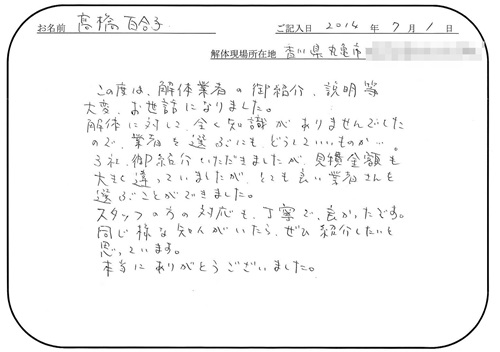 お名前 高橋百合子 ご記入日 2014 年 7 月 1 日
解体現場所在地 香川県丸亀市
この度は、解体業者の御紹介、説明等
大変、お世話になりました。
解体に対して、全く知識がありませんでした
ので、業者を選ぶにも、どうしていいものか…。
3社、御紹介いただきましたが、見積金額も
大きく違っていましたが、とても良い業者さんを
選ぶことができました。
スタッフの方の対応も、丁寧で、良かったです。
同じ様な知人がいたら、ぜひ紹介したいと
思っています。
本当にありがとうございました。